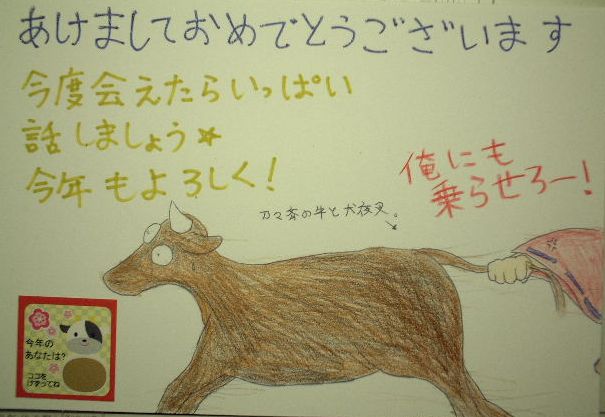 あけましておめでとうございます
今度会えたらいっぱい
話しましょう★
今年もよろしく!
俺にも
乗らせろー!
刀々斎の牛と犬夜叉。
今年の
あなたは?
ココを
けずってね